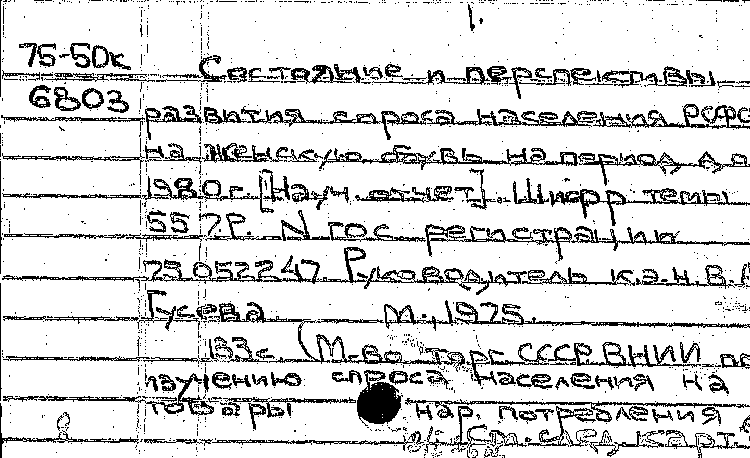 1.
75-50к Состояние и перспективы
6803 развития спроса населения РСФС
на женскую обувь на период до
1980 г. [Науч. отчет]. Шифр темы
557.Р. N гос. регистрации
75052247. Руководитель к.э.н. В.
Гусева М., 1975.
133 с. (М-во торг. СССР. ВНИИ по
изучению спроса населения на
товары нар. потребления
См. след. карт.